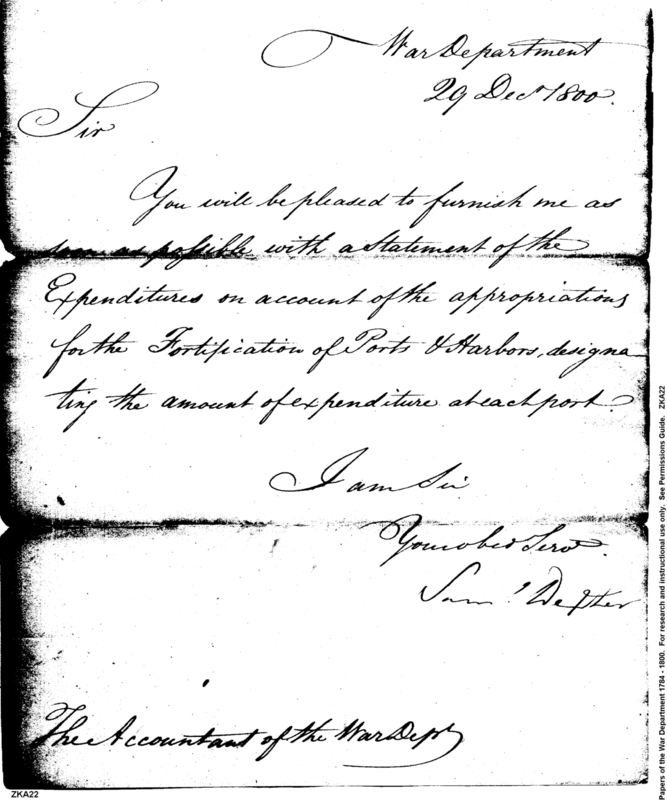 War Department
29 Decr 1800.
Sir
You will be pleased to furnish me as
soon as possible with a Statement of the
Expenditures on account of the appropriations
for the Fortification of Ports & Harbors, designa
ting the amount of expenditure at each port.
I am Sir
Your obed Servt.
Saml Dexter
The Accountant of the War Dept
ZKA22
Papers of the War Department 1784 - 1800. For research and instructional use only. See Permissions Guide. ZKA22